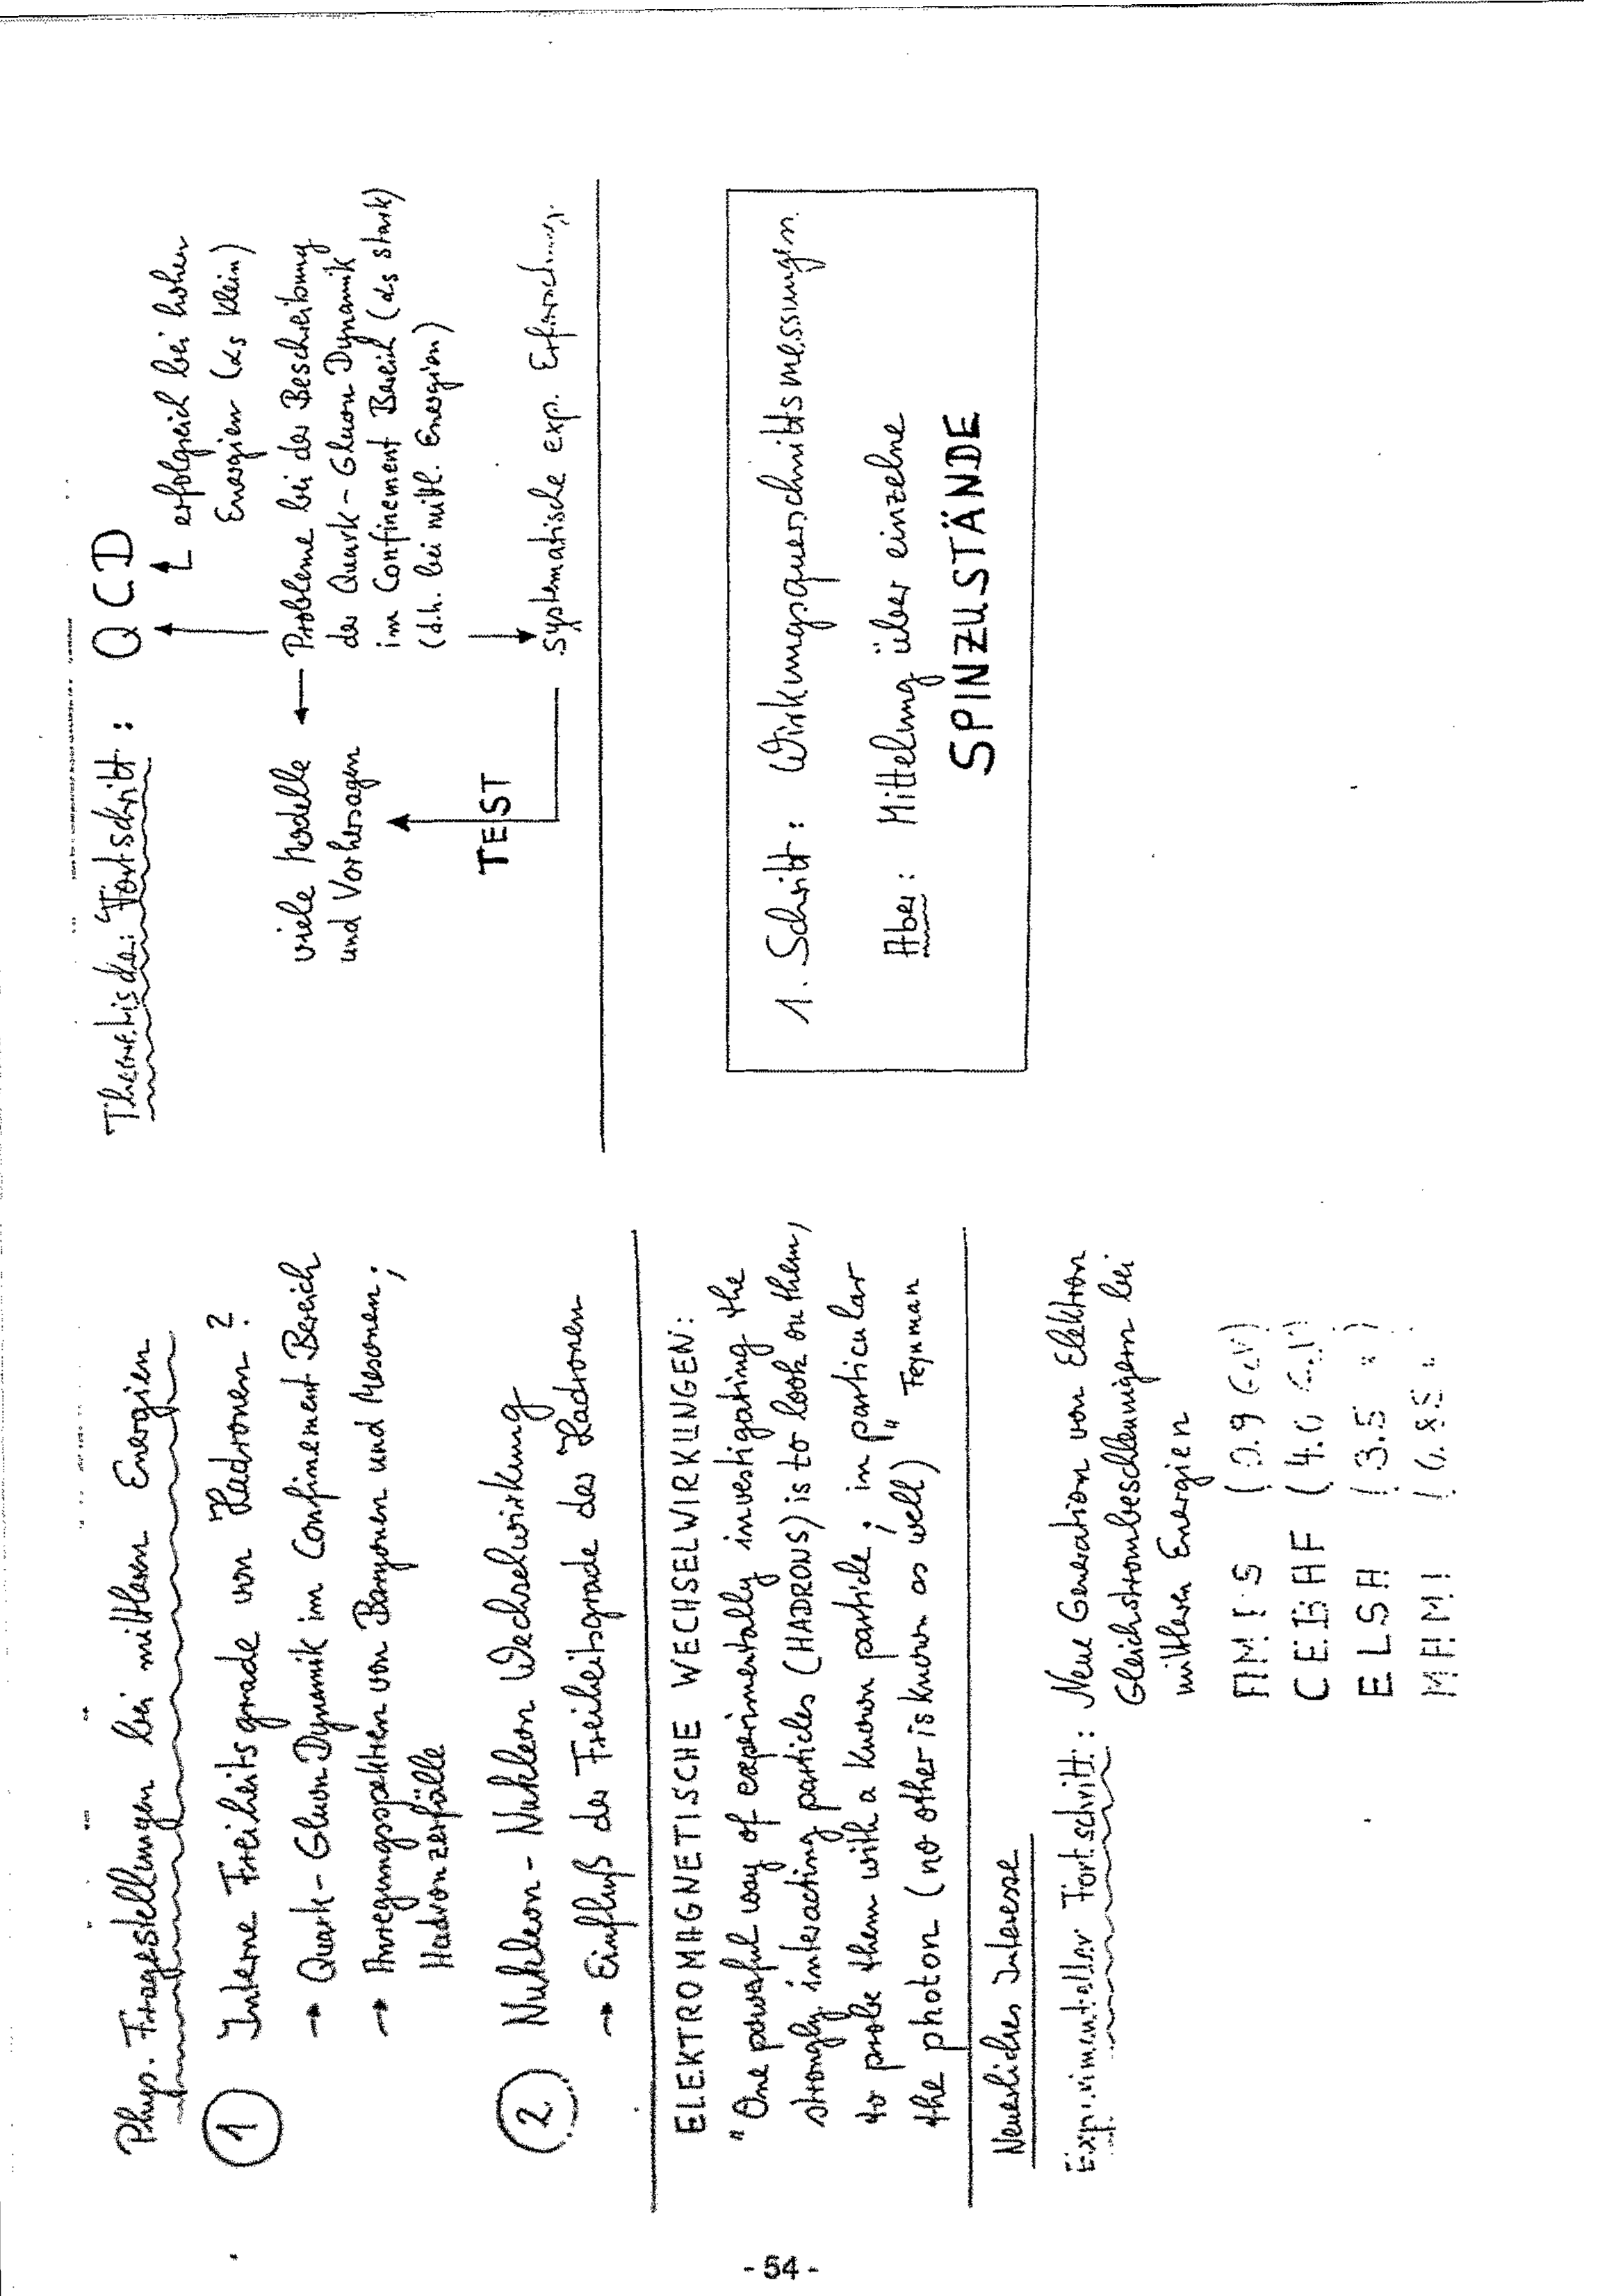 Phys. Fragestellungen bei mittleren Energien
1 Interne Freiheitsgrade von Hadronen?
→ Quark-Gluon Dynamik im Confinement Bereich
→ Anregungsspektren von Baryonen und Mesonen;
Hadronzerfälle
2 Nukleon-Nukleon Wechselwirkung
→ Einfluß der Freiheitsgrade des Hadronen
ELEKTROMAGNETISCHE WECHSELWIRKUNGEN:
"One powerful way of experimentally investigating the
strongly interacting particles (HADRONS) is to look on them,
to probe them with a known particle; in particular
the photon (no other is known as well)" Feynman
Neuerliches Interesse
Experimenteller Fortschritt: Neue Generation von Elektron
Gleichstrombeschleunigern bei
mittleren Energien
(0.9 GeV)
CEBAF (4.0 GeV)
ELSA (3.5 " )
MAMI
Theoretischer Fortschritt: QCD
erfolgreich bei hohen
Energien (αs klein)
viele Modelle ← Probleme bei der Beschreibung
und Vorhersagen der Quark-Gluon Dynamik
im Confinement Bereich (αs stark)
(d.h. bei mittl. Energien)
TEST
systematische exp.
1. Schritt: Wirkungsquerschnittsmessungen
Aber: Mittelung über einzelne
SPINZUSTÄNDE
- 54 -